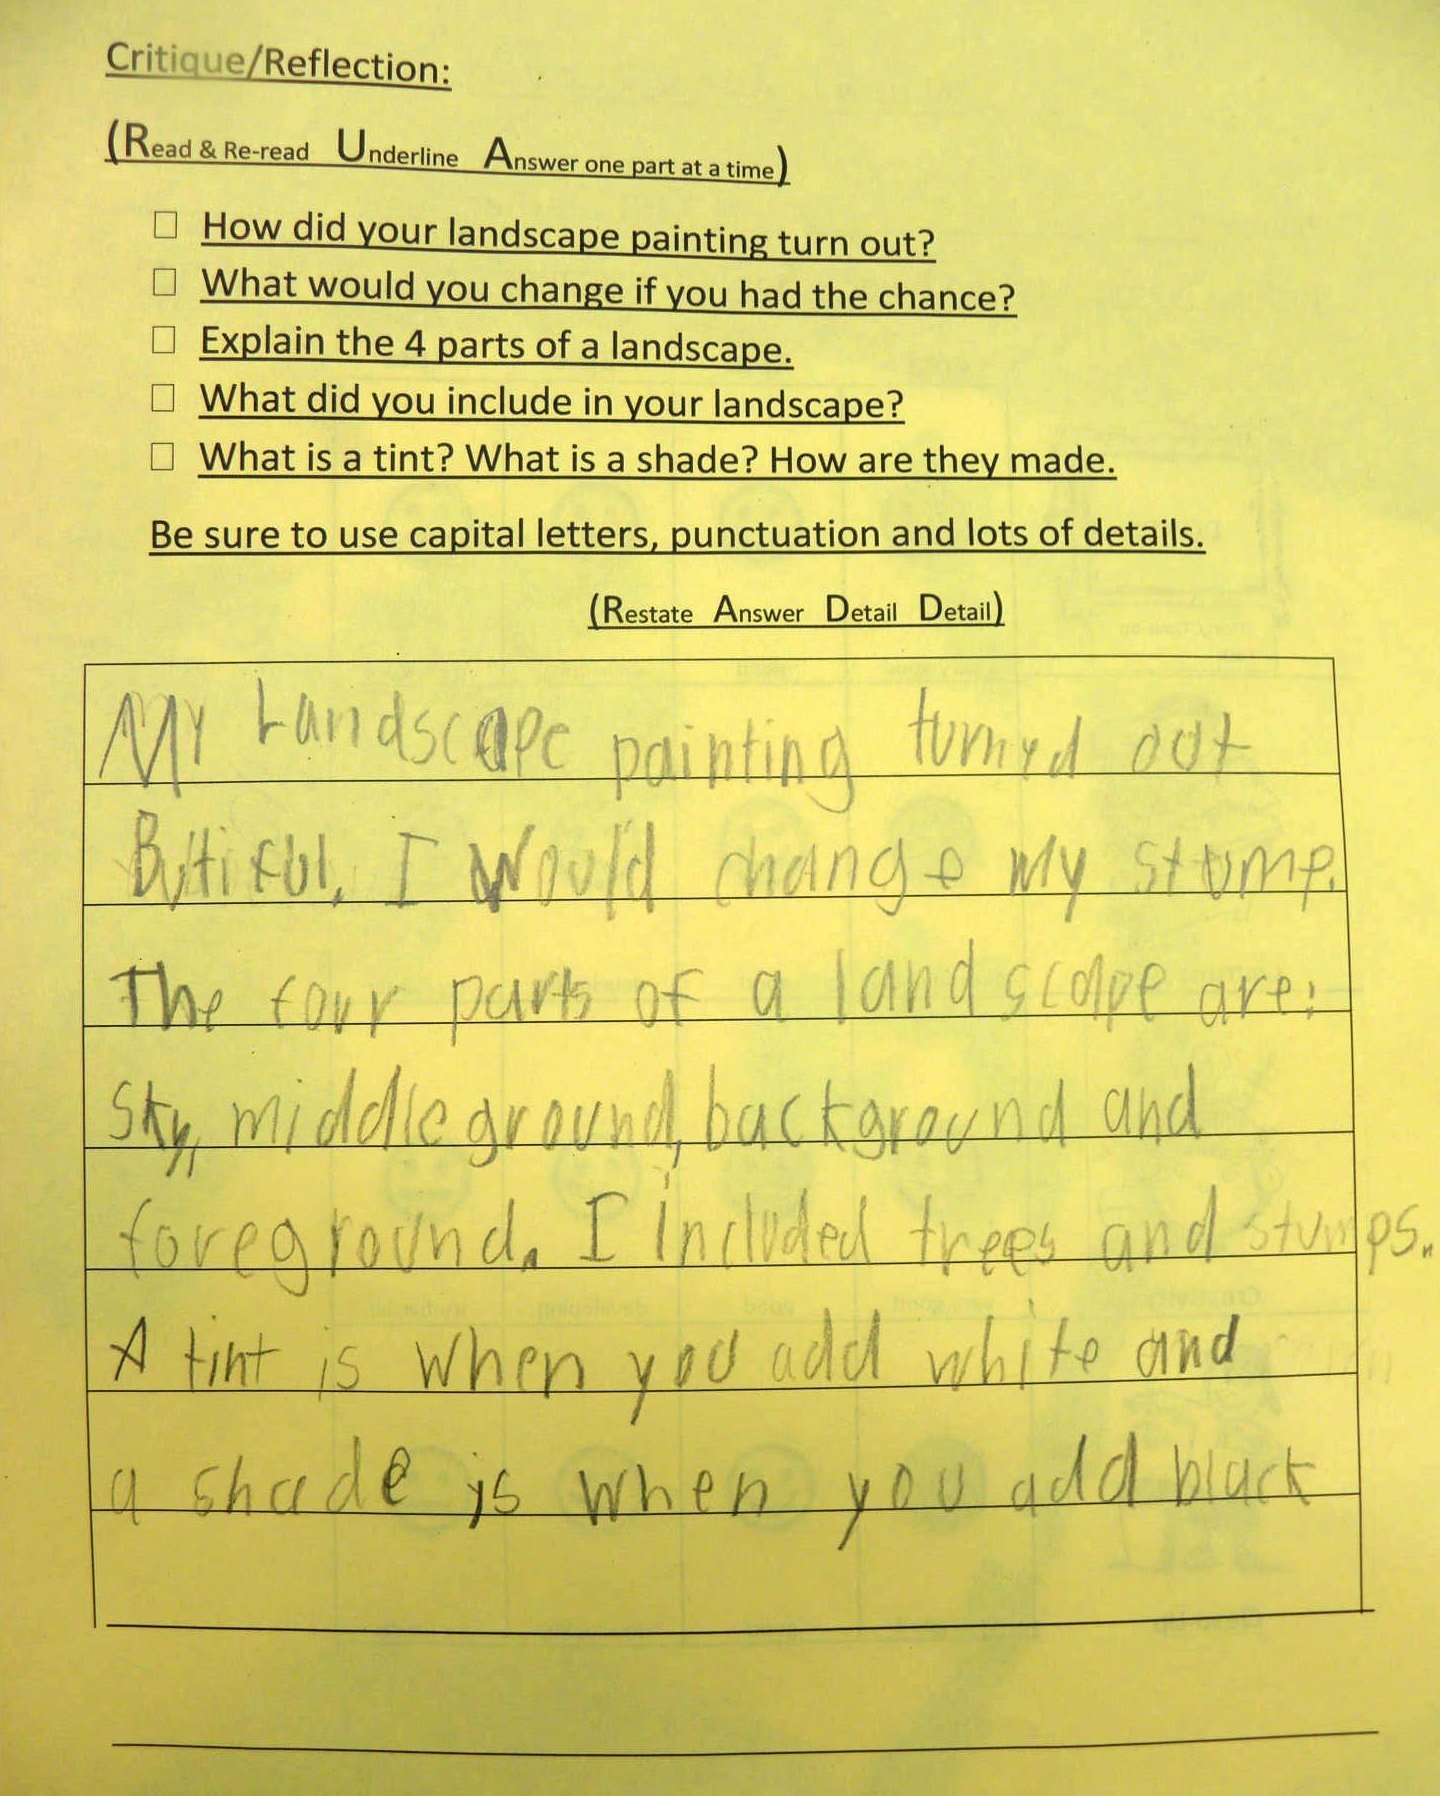 Critique/Reflection:
(Read & Re-read Underline Answer one part at a time)
☐ How did your landscape painting turn out?
☐ What would you change if you had the chance?
☐ Explain the 4 parts of a landscape.
☐ What did you include in your landscape?
☐ What is a tint? What is a shade? How are they made.
Be sure to use capital letters, punctuation and lots of details.
(Restate Answer Detail Detail)
My Landscape painting turnyd out
Buttiful. I Would change My stump.
The four parts of a landscape are:
Sky, middleground, background and
foreground. I included trees and stumps.
A tint is when you add white and
a shade is when you add black